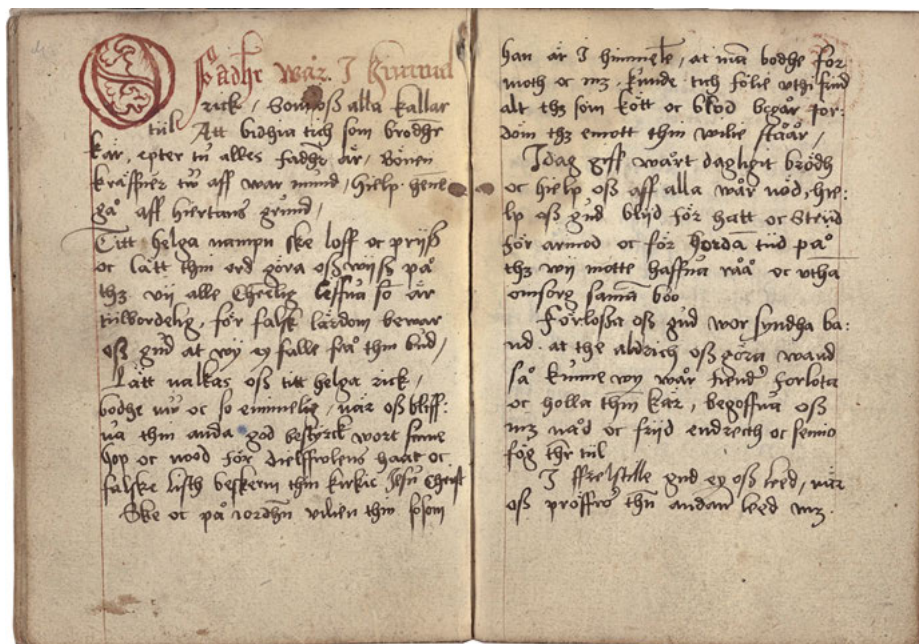 O Fadhr wår J himmel
rick, Som oß alla kallar
tiil Att bidhia tich som brödhr
kär, epter tu alles fadhr är, Bönen
kräffuer tw aff war mund, hielp henne
gå aff hiertans grund,
Titt helga nampn ske loff oc prijß
oc lått thin ord göra oß wijß på
thz vij alle Christelig leffua so är
tiilbordelig, för falsk lärdom bewar
oß gud at wy ey falle frå thin bud,
Lått nalkas oß titt helga rick,
bodhe nw oc so ewinnelig, när oß bliff:
ua thin anda god bestyrck wort sinne
hop oc mood för dieffwlens haat oc
falske listh beskerm thin kirkie Jesu Christ
Ske oc på iordhn vilien thin sosom
han är J himmele, at må bodhe för
moth oc mz, kunde tich fölie vthi find
alt thz som kött oc blod begår for:
döm thz emott thin wilie står,
Jdag giff wårt dagligit brödh
oc hielp oß aff alla wår nöd, hie:
lp oß gud blijd för hatt oc Strijd
för armod oc för hordå tijd på
thz wij motte haffua råå oc vthå
omsorg samå boo
Förlossa oß gud wor syndha ba:
nd. at the aldrich oß göra wand
så kunne wy wår fiendr forlota
oc holla thm kär, begoffua oß
mz nåd oc frijd endrecth oc senno
fög thr tiil
J ffrestille gud ey oß leed, när
oß pröffwr thn andan leed mz